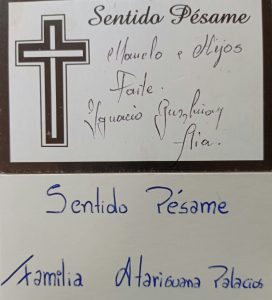 Sentido Pésame
Manuelo e Hijos
Faite.
Ygnacio
flia.
Sentido Pésame
Familia Atariguana Palacios